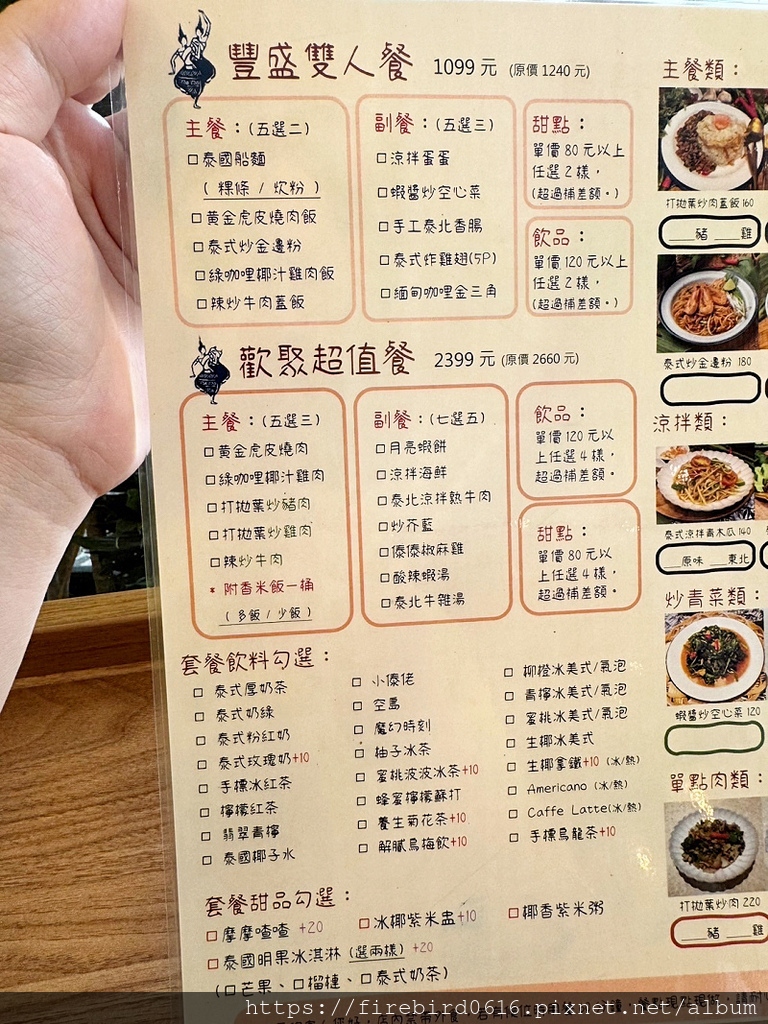 豐盛雙人餐 1099 元 (原價 1240 元)
主餐：(五選二)
□泰國船麵
( 粿條 / 炊粉 )
□黃金虎皮燒肉飯
□泰式炒金邊粉
□綠咖哩椰汁雞肉飯
□辣炒牛肉蓋飯
副餐：(五選三)
□涼拌蛋蛋
□蝦醬炒空心菜
□手工泰北香腸
□泰式炸雞翅(5P)
□緬甸咖哩金三角
甜點：
單價 80 元以上
任選 2 樣，
(超過補差額。)
飲品：
單價 120 元以上
任選 2 樣，
(超過補差額。)
歡聚超值餐 2399 元 (原價 2660 元)
主餐：(五選三)
□黃金虎皮燒肉
□綠咖哩椰汁雞肉
□打拋葉炒豬肉
□打拋葉炒雞肉
□辣炒牛肉
* 附香米飯一桶
( 多飯 / 少飯 )
副餐：(七選五)
□月亮蝦餅
□涼拌海鮮
□泰北涼拌熱牛肉
□炒芥藍
□傣傣椒麻雞
□酸辣蝦湯
□泰北牛雜湯
飲品：
單價 120 元以
上任選 4 樣，
超過補差額。
甜點：
單價 80 元以
上任選 4 樣，
超過補差額。
套餐飲料勾選：
□ 泰式厚奶茶
□ 泰式奶綠
□ 泰式粉紅奶
□ 泰式玫瑰奶+10
□ 手標冰紅茶
□ 檸檬紅茶
□ 翡翠青檸
□ 泰國椰子水
□ 小傣佬
□ 空島
□ 魔幻時刻
□ 柚子冰茶
□ 蜜桃波波冰茶+10
□ 蜂蜜檸檬蘇打
□ 養生菊花茶+10
□ 解膩烏梅飲+10
□ 柳橙冰美式/氣泡
□ 青檸冰美式/氣泡
□ 蜜桃冰美式/氣泡
□ 生椰冰美式
□ 生椰拿鐵+10 (冰/熱)
□ Americano (冰/熱)
□ Caffe Latte(冰/熱)
□ 手標烏龍茶+10
套餐甜品勾選：
□摩摩喳喳 +20
□冰椰紫米盅+10
□椰香紫米粥
□泰國明果冰淇淋 (選兩樣) +20
(□芒果、□榴槤、□泰式奶茶)
主餐類：
打拋葉炒肉蓋飯 160
__豬 __雞
泰式炒金邊粉 180
涼拌類：
泰式涼拌青木瓜 140
__原味 __東北
炒青菜類：
蝦醬炒空心菜 120
單點肉類：
打拋葉炒肉 220
__豬 __雞
https://firebird0616.pixnet.net/album